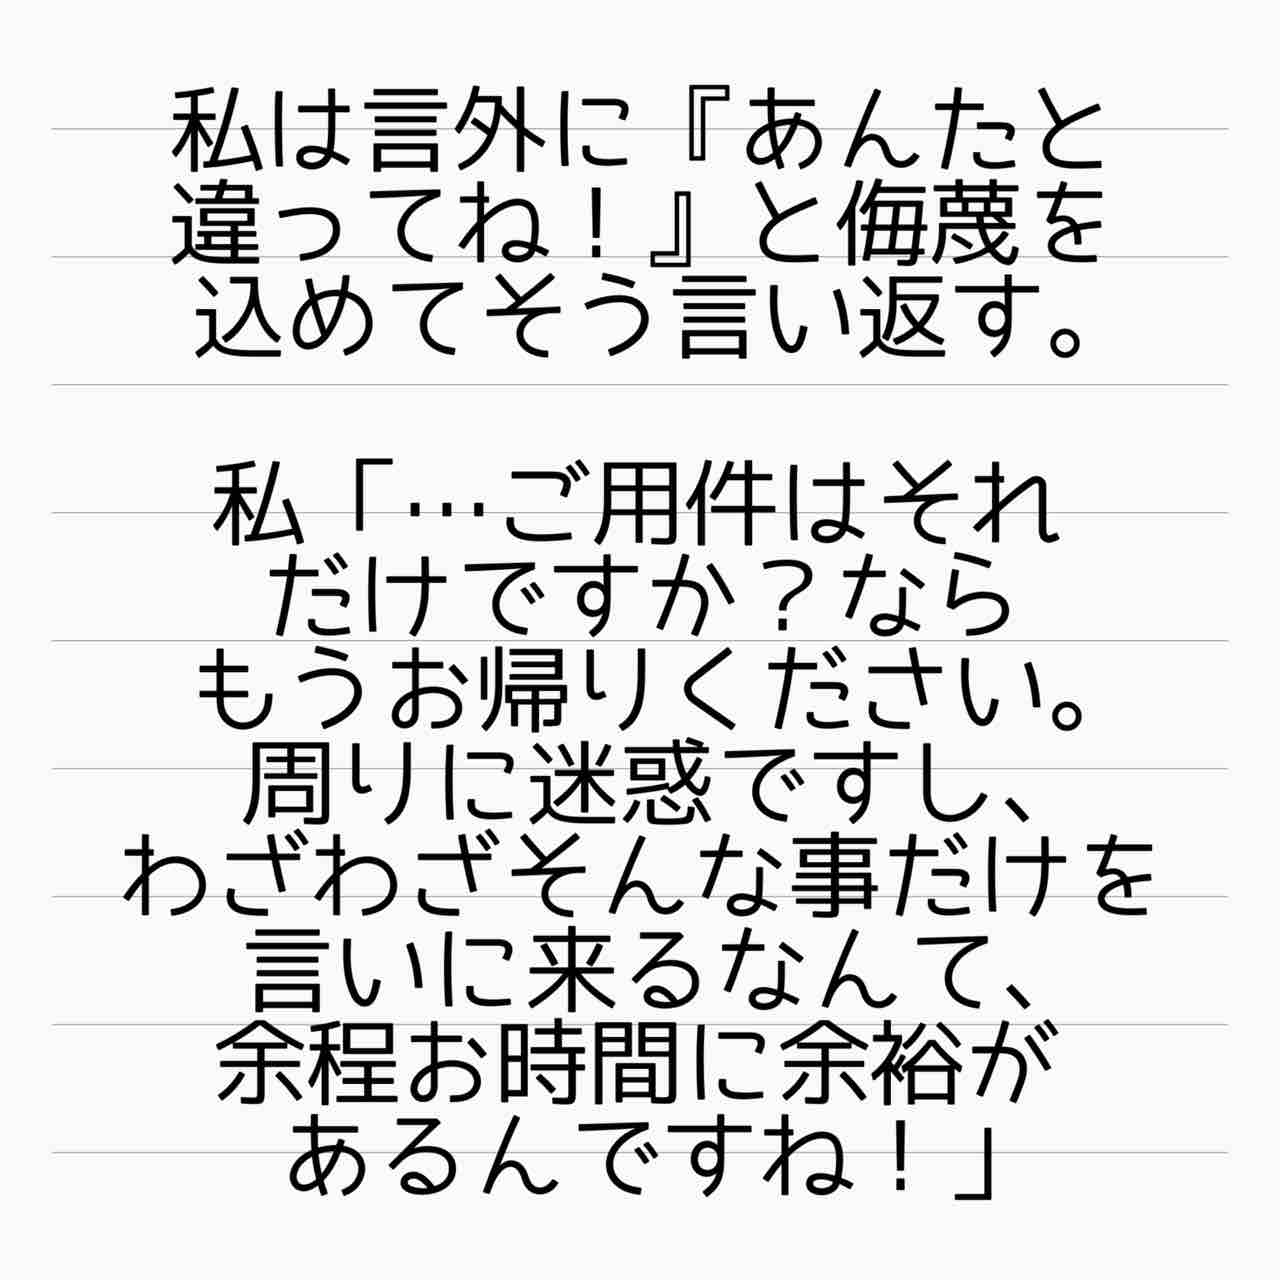 私は言外に『あんたと
違ってね！』と侮蔑を
込めてそう言い返す。
私「…ご用件はそれ
だけですか？なら
もうお帰りください。
周りに迷惑ですし、
わざわざそんな事だけを
言いに来るなんて、
余程お時間に余裕が
あるんですね！」